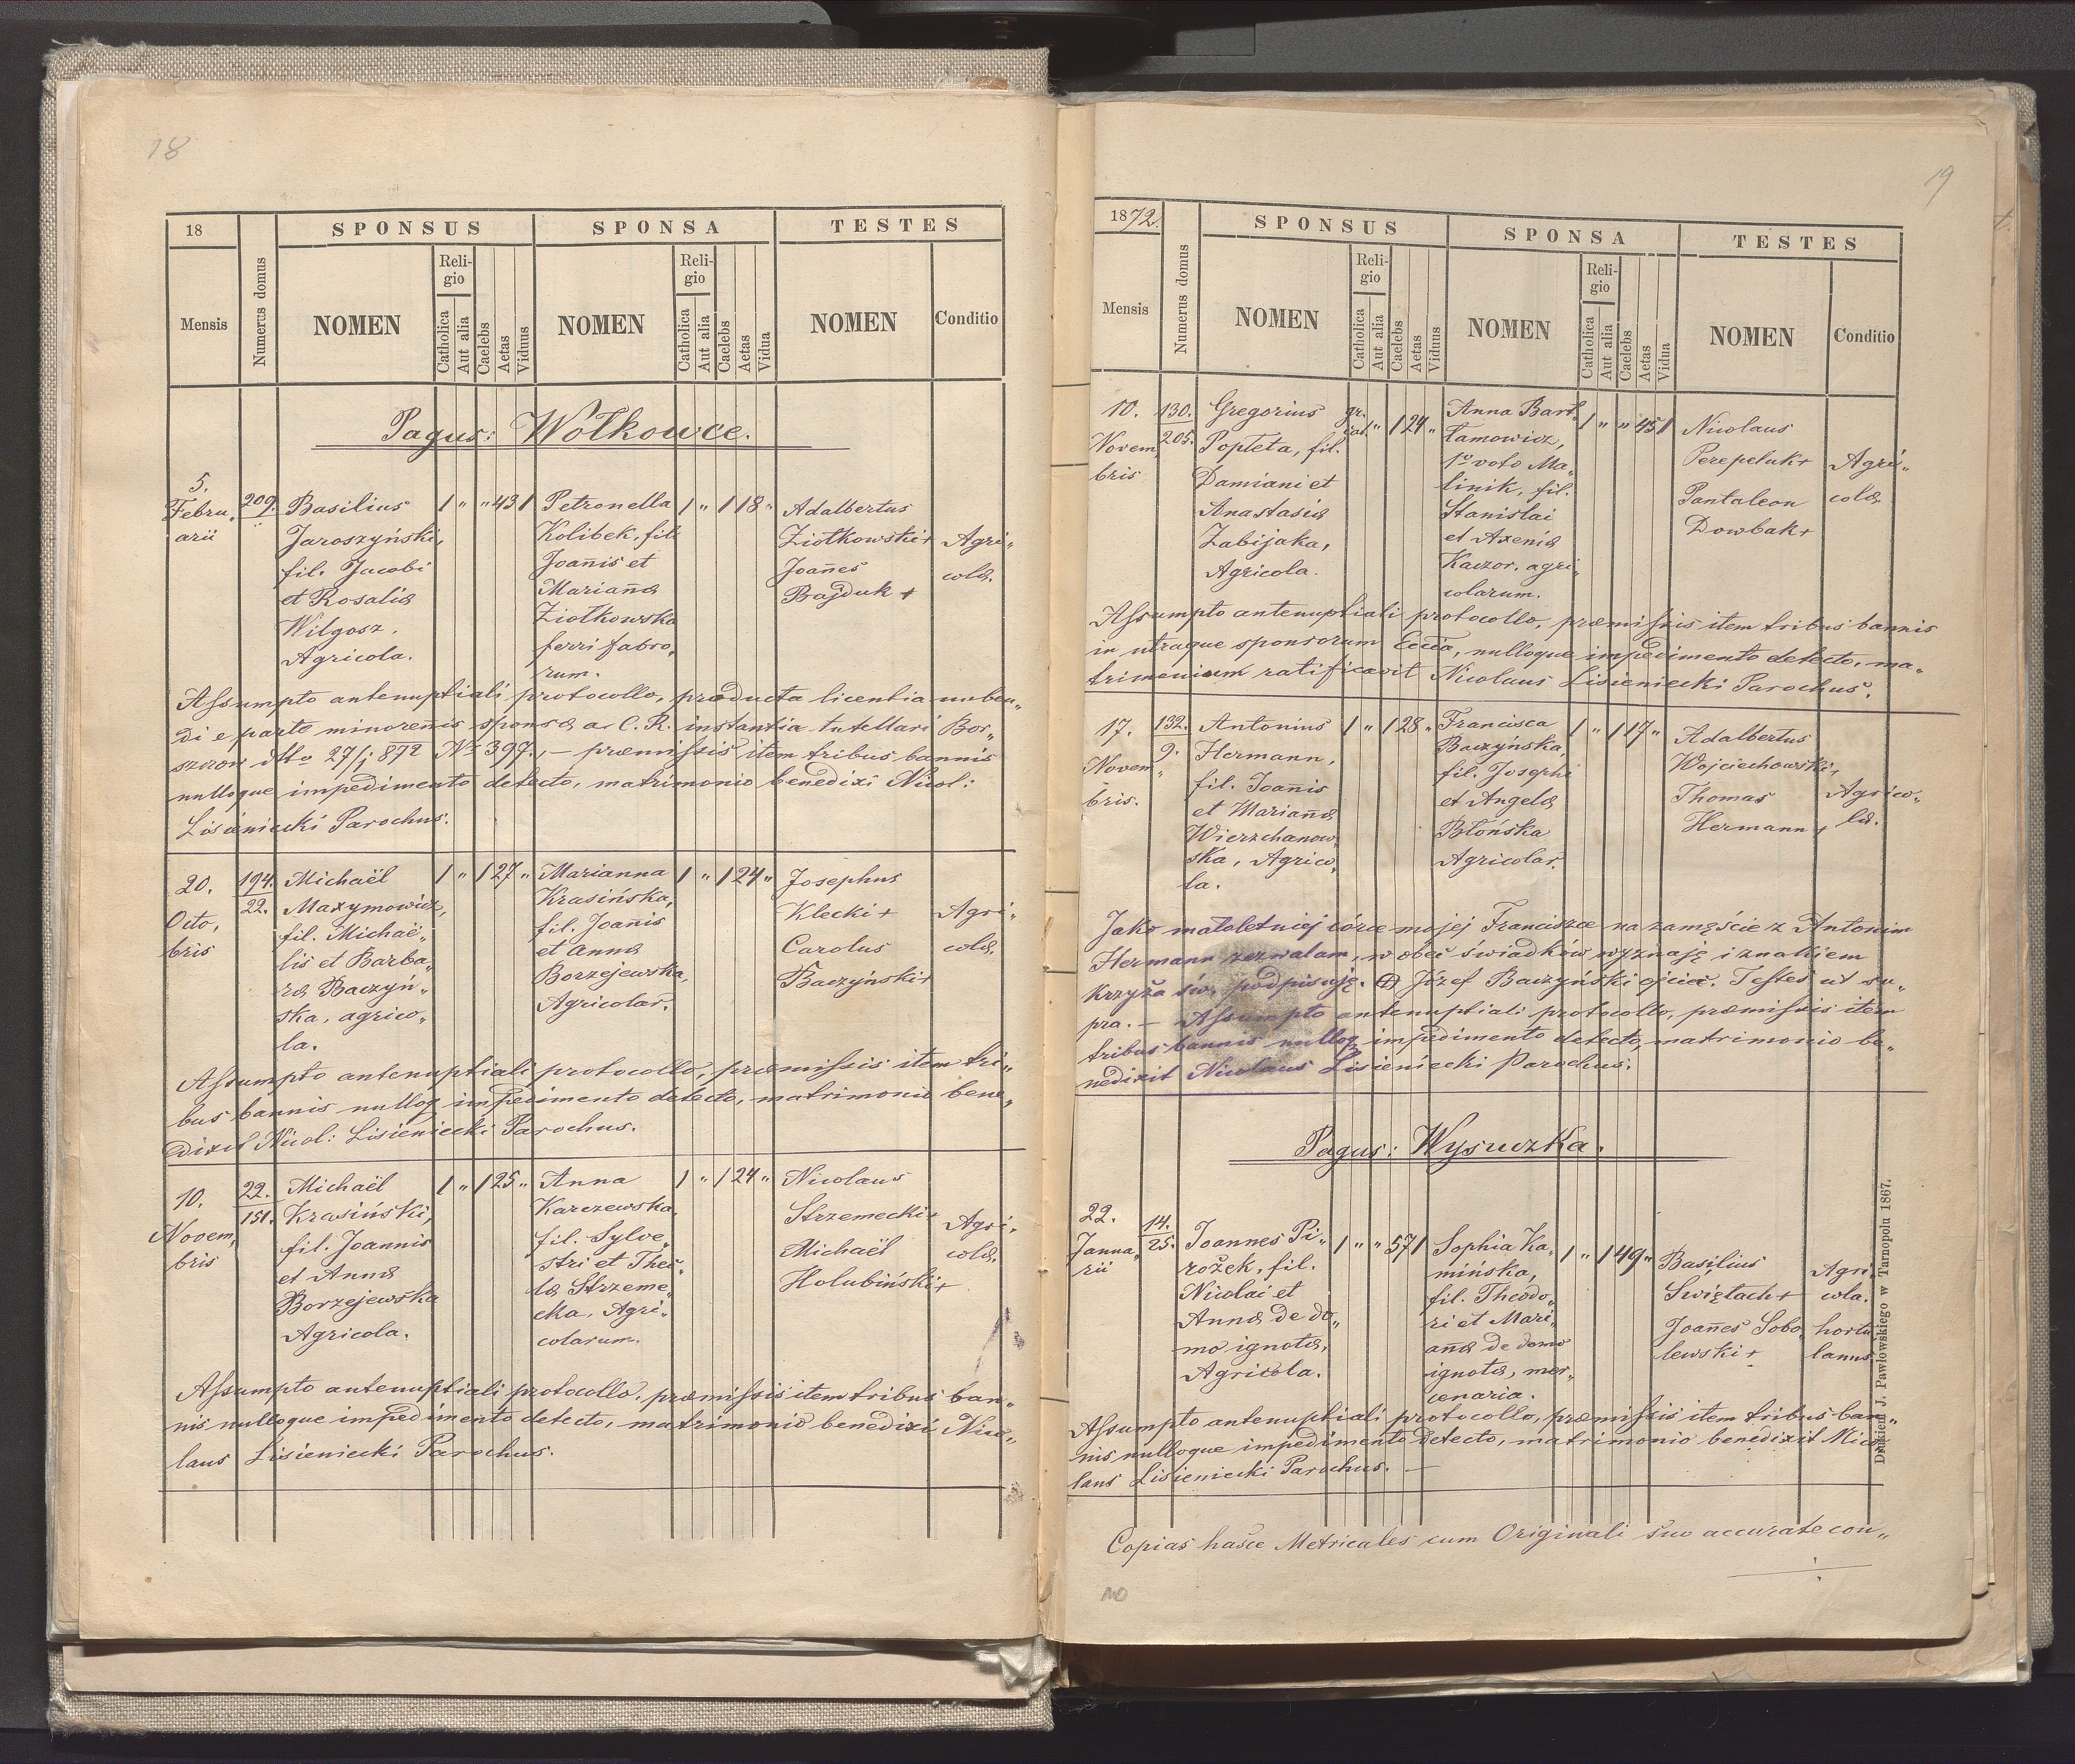 18
18
Mensis
Numerus domus
SPONSUS
NOMEN
Reli-
gio
Catholica
Aut alia
Caelebs
Aetas
Viduus
SPONSA
NOMEN
Reli-
gio
Catholica
Aut alia
Caelebs
Aetas
Vidua
TESTES
NOMEN
Conditio
Pagus: Wołkowce.
5.
Febru„
arii
209.
Basilius
Jaroszyński,
fil. Jacobi
et Rosaliæ
Wilgosz.
Agricola.
1 „ „ 43 1
Petronella
Kolibek, fil.
Joan̄is et
Marian̄æ
Ziołkowska
ferri fabro„
rum.
1 „ 1 18 „
Adalbertus
Ziołkowski+
Joan̄es
Bajduk +
Agri„
colæ.
Assumpto antenuptiali protocollo, producta licentia nuben„
di e parte minoren̄is sponsæ a C. R. instantia tutellari Bor„
szczow dtto 27/1 872 Nr 397, — præmissis item tribus bannis
nulloque impedimento detecto, matrimonio benedixi Nicol:
Lisieniecki Parochus.
20.
Octo„
bris
194.
22.
Michaël
Maxymowicz,
fil. Michaë„
lis et Barba„
ræ Baczyń„
ska, agrico„
la.
1 „ 1 27 „
Marianna
Krasińska,
fil. Joan̄is
et Annæ
Borzejewska,
Agricolar.
1 „ 1 24 „
Josephus
Klecki +
Carolus
Baczyński+
Agri„
colæ.
Assumpto antenuptiali protocollo, præmissis item tri„
bus bannis nulloq impedimento detecto, matrimonio bene„
dixit Nicol: Lisieniecki Parochus.
10.
Novem„
bris
22.
151.
Michaël
Krasiński,
fil. Joannis
et Annæ
Borzejewska
Agricola.
1 „ 1 25 „
Anna
Karczewska,
fil. Sylve„
stri et Thec„
læ Strzeme„
cka, Agri„
colarum.
1 „ 1 24 „
Nicolaus
Strzemecki+
Michaël
Holubiński+
Agri„
colæ.
Assumpto antenuptiali protocollo, præmissis item tribus ban„
nis nulloque impedimento detecto, matrimonio benedixi Nico„
laus Lisieniecki Parochus.
19
1872.
Mensis
Numerus domus
SPONSUS
NOMEN
Reli-
gio
Catholica
Aut alia
Caelebs
Aetas
Viduus
SPONSA
NOMEN
Reli-
gio
Catholica
Aut alia
Caelebs
Aetas
Vidua
TESTES
NOMEN
Conditio
10.
Novem„
bris
130.
205.
Gregorius
Popteta, fil.
Damiani et
Anastasiæ
Zabijaka,
Agricola.
gr.
cat. „ 1 24 „
Anna Bart„
łamowicz,
1º voto Ma„
linik, fil.
Stanislai
et Axeniæ
Kaczor, agri„
colarum.
1 „ „ 45 1
Nicolaus
Perepeluk+
Pantaleon
Dowbak+
Agri„
colæ.
Assumpto antenuptiali protocollo, præmissis item tribus bannis
in utraque sponsorum Eccła, nulloque impedimento detecto, ma„
trimonium ratificavit Nicolaus Lisieniecki Parochus.
17.
Novem„
bris.
132.
9.
Antonius
Hermann,
fil. Joan̄is
et Marian̄æ
Wierzchanow„
ska, Agrico„
la.
1 „ 1 28 „
Francisca
Baczyńska,
fil. Josephi
et Angelæ
Błońska
Agricolar.
1 „ 1 17 „
Adalbertus
Wojciechowski+
Thomas
Hermann+
Agrico„
læ.
Jako małoletniej córce mojej Franciszce na zamęście z Antonim
Hermann zezwalam, w obec świadków wyznaję i znakiem
Krzyża św. podpisuję. (+) Józef Baczyński ojciec. Testes ut su„
pra. — Assumpto antenuptiali protocollo, præmissis item
tribus bannis nulloq impedimento detecto, matrimonio be„
nedixit Nicolaus Lisieniecki Parochus.
Pagus: Wysuczka.
22.
Janua„
rii
14.
25.
Joannes Pi„
rożek, fil.
Nicolai et
Annæ de do„
mo ignotæ,
Agricola.
1 „ „ 57 1
Sophia Ka„
mińska,
fil. Theodo„
ri et Mari„
an̄æ de domo
ignotæ, mer„
cenaria.
1 „ 1 49 „
Basilius
Świętach+
Joan̄es Sobo„
lewski+
Agri„
cola.
hortu„
lanus
Assumpto antenuptiali protocollo, præmissis item tribus ban„
nis nulloque impedimento detecto, matrimonio benedixit Nico„
laus Lisieniecki Parochus. —
Copias hasce Metricales cum Originali suo accurate con„
Drukiem J. Pawłowskiego w Tarnopolu 1867.